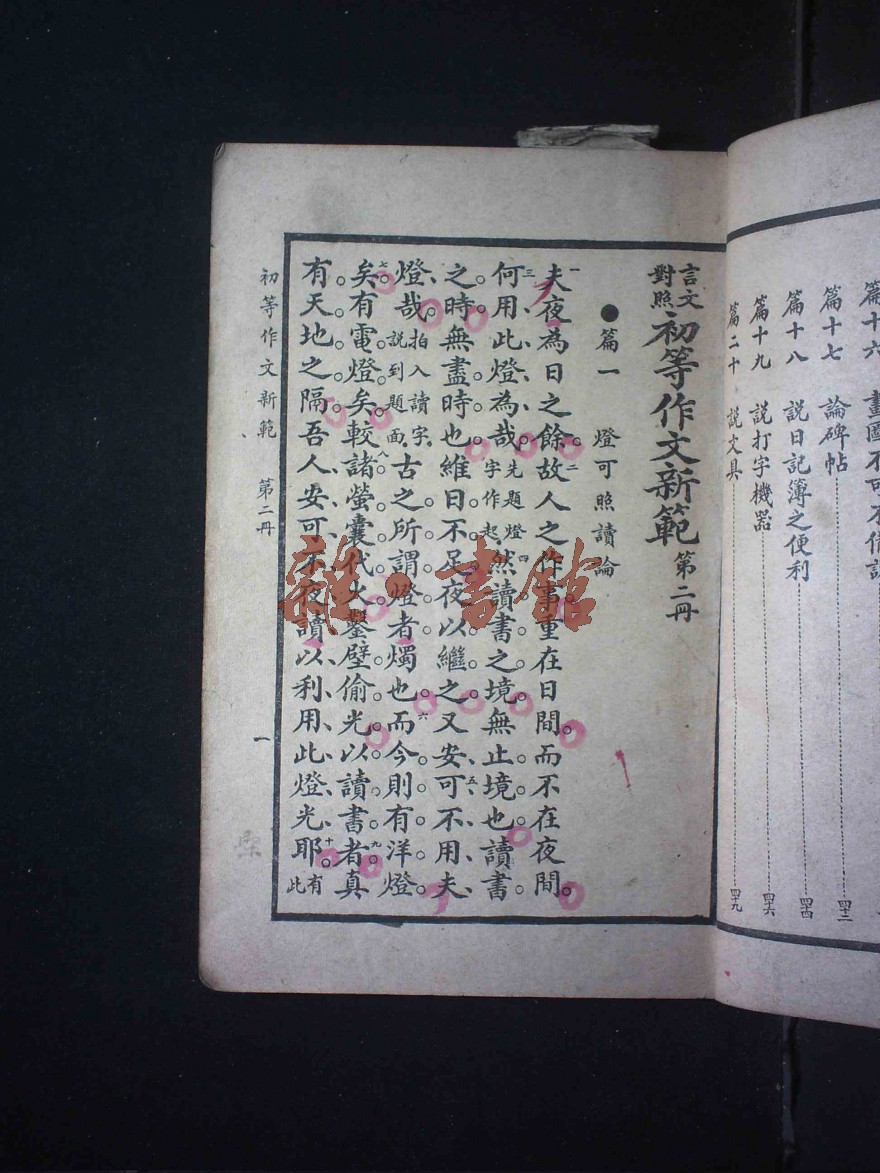 篇十七 論碑帖 四十二
篇十八 說日記簿之便利 四十四
篇十九 說打字機器 四十六
篇二十 說文具 四十九
言文對照初等作文新範 第二冊
●篇一 燈可照讀論
一夫夜為日之餘。二故人之作事。重在日間。而不在夜間。
三何用此燈為哉。先題燈字作起。四然讀書之境。無止境也。讀書
之時。無盡時也。維日不足。夜以繼之。又五安可不用夫
燈哉。拍入讀字。說到題面。古之所謂燈者。燭也。六而今則有洋燈
七矣。有電燈矣。八較諸螢囊代火。鑿壁偷光。以讀書者。九真
有天地之隔。吾人安可不夜讀以利用此燈光耶。十有此
初等作文新範 第二冊 一
雜·書館